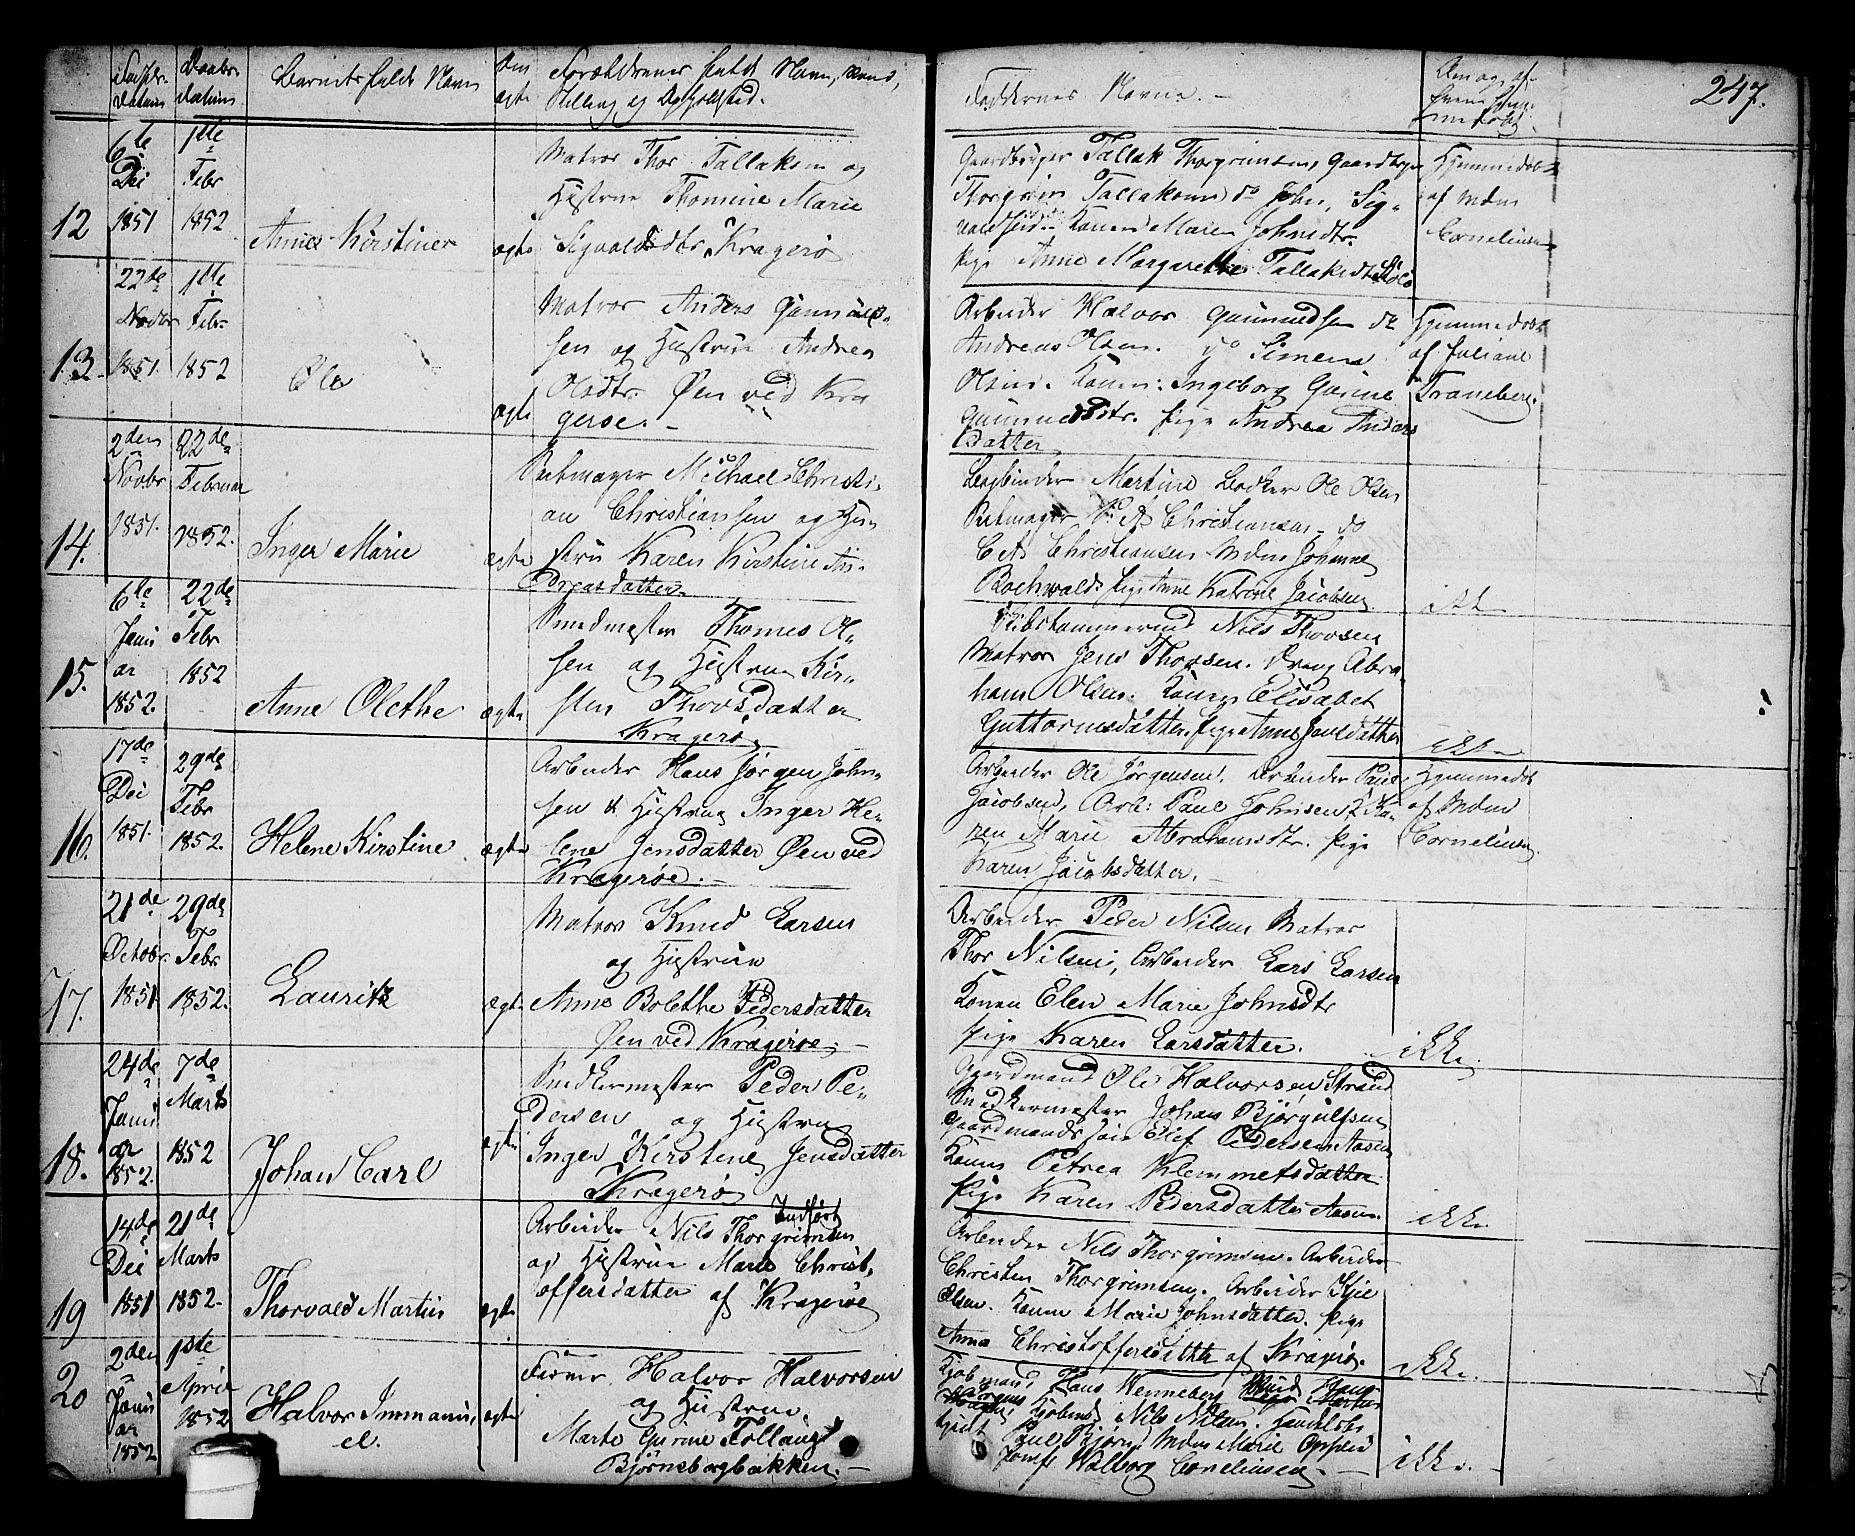 Fødsels
Datum
Daabs
datum
Barnets fulde Navn
ægte
Forældrenes fulde Navn, Stand,
Stilling og Opholdsted.
Faddernes Navne.
Om og af
hvem
247.
12
6te
Dec
1851
1ste
Febr
1852
Anne Kirstine
ægte
Matros Thor Tallaksen og
Hustrue Thomine Marie
Sigvaldsdtr. Kragerø
Gaardbruger Tallak Thorgrimsen, Gaardbrugr
Thorgrim Tallaksen do John, Sig-
Konen Maren Johnsdtr.
Pige Anne Margarethe Tallaksdtr
Hjemmedøbt
af Mdm
Cornelius
13
22de
Novbr
1851.
1ste
Febr.
1852
Ole
ægte
Matros Anders Gunnuld-
sen og Hustrue Andrea
Olsdtr. Øen ved Kra
gerøe.
Arbeider Halvor Gunnuldsen do
Andreas Olsen. do Simen
Olsen. Konen: Ingeborg Gurine
Gunnuldsdtr. Pige Andrea Anders
datter
Hjemmedøbt
af Juliane
Traneberg.
14.
2den
Novbr
1851.
22de
Februar
1852.
Inger Marie
ægte
Michael Christi-
an Christiansen og Hu-
stru Karen Kirstine An-
dreasdatter
Bogbinder Martini Bødker Ole Olsen
Christiansen do
Christiansen Mdm Johanne
Buchwald Pige Anne Katrine Jacobsen
ikke
15.
6te
Janu
ar
1852.
22de
Febr
1852
Anne Olethe
ægte
Smedmester Thomes Ol-
sen og Hustrue Kir-
sten Thorsdatter
Kragerø
Skibstømmermand Nils Thorsen
Matros Jens Thorsen. Dreng Abra-
ham Olsen. Konen Elisabet
Guttormsdatter. Pige Anne Jensdatter
ikke
16.
17de
Dec
1851.
29de
Febr
1852.
Helene Kirstine
ægte
Arbeider Hans Jørgen John-
sen & Hustrue Inger He-
lene Jensdatter Øen ved
Kragerøe.
Arbeider Ole Jørgensen. Arbeider Paul
Jacobsen, Arb: Paul Johnsen, K. Ka-
ren Marie Abrahamsdtr. Pige
Karen Jacobsdatter.
Hjemmedøbt
af Mdm
Cornelius
17.
21de
Octobr.
1851
29de
Febr
1852.
Lauritz
ægte
Matros Knud Larsen
og Hustrue
Anne Bolethe Pedersdatter
Øen ved Kragerøe
Arbeider Peder Nilsen Matros
Thor Nilsen, Arbeider Lars Larsen
Konen Elen Marie Johnsdtr
Pige Karen Larsdatter.
ikke.
18.
24de
Janu
ar
1852.
7de
Marts
1852
Johan Carl
ægte
Snedkermester Peder Pe-
dersen og Hustrue
Inger Kirstine Jensdatter
Kragerø
Gaardmand Ole Halvorsen, Strand
Snedkermester Johan Bjørgulfsen
Gaardmandssøn Elef Pedersen Aasen
Konen Petrea Klemmetsdatter
Pige Karen Pedersdatter Aasen.
ikke.
19
14de
Dec
1851
21de
Marts
1852.
Thorvald Martin
ægte
Indført
Arbeider Nils Thorgrimsen
og Hustrue Maren Christ-
offersdatter af Kragerøe
Arbeider Nils Thorgrimsen. Arbeider
Christen Thorgrimsen. Arbeider Kjel
Olsen. Konen Marie Johnsdatter. Pige
Anna Christoffersdatter af Kragerø.
ikke.
20
2den
Janu
ar
1852
1ste
April
1852
Halvor Immanu-
el.
ægte
Halvor Halvorsen
og Hustrue
Marte Gurine Tollaugs
Bjørnsborgbakken.
Kjøbmand Hans Wenneberg
Kjøbmd Nils Nilsen. Handelsb
Paul Bjørn. Mdm Marie
Jomf Walborg Corneliusen.
ikke.